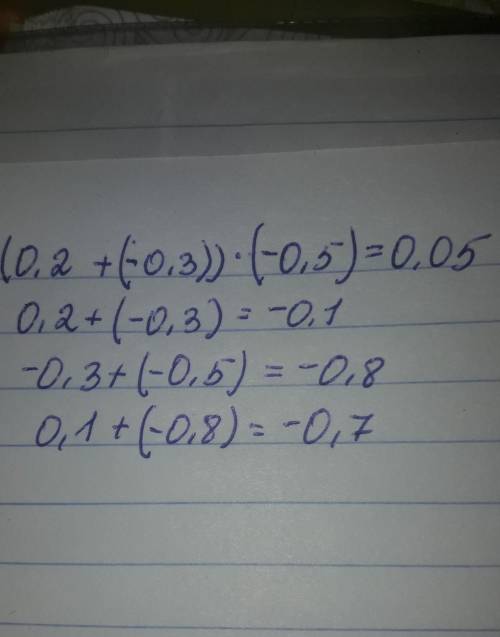 (0,2 + (-0,3)) · (-0,5) = 0,05
0,2 + (-0,3) = -0,1
-0,3 + (-0,5) = -0,8
0,1 + (-0,8) = -0,7